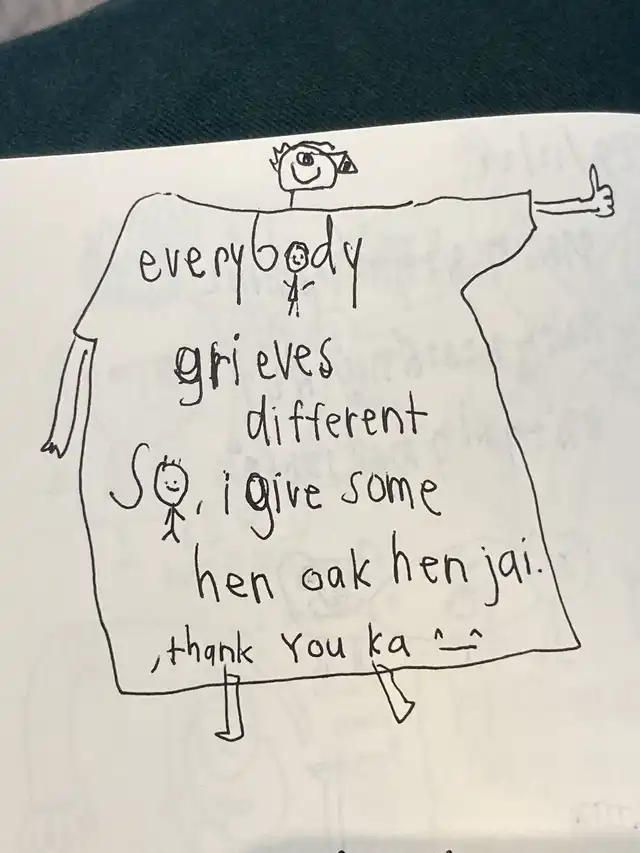 everybody
grieves
different
SO, i give some
hen oak hen jai.
, thank You ka ^_^